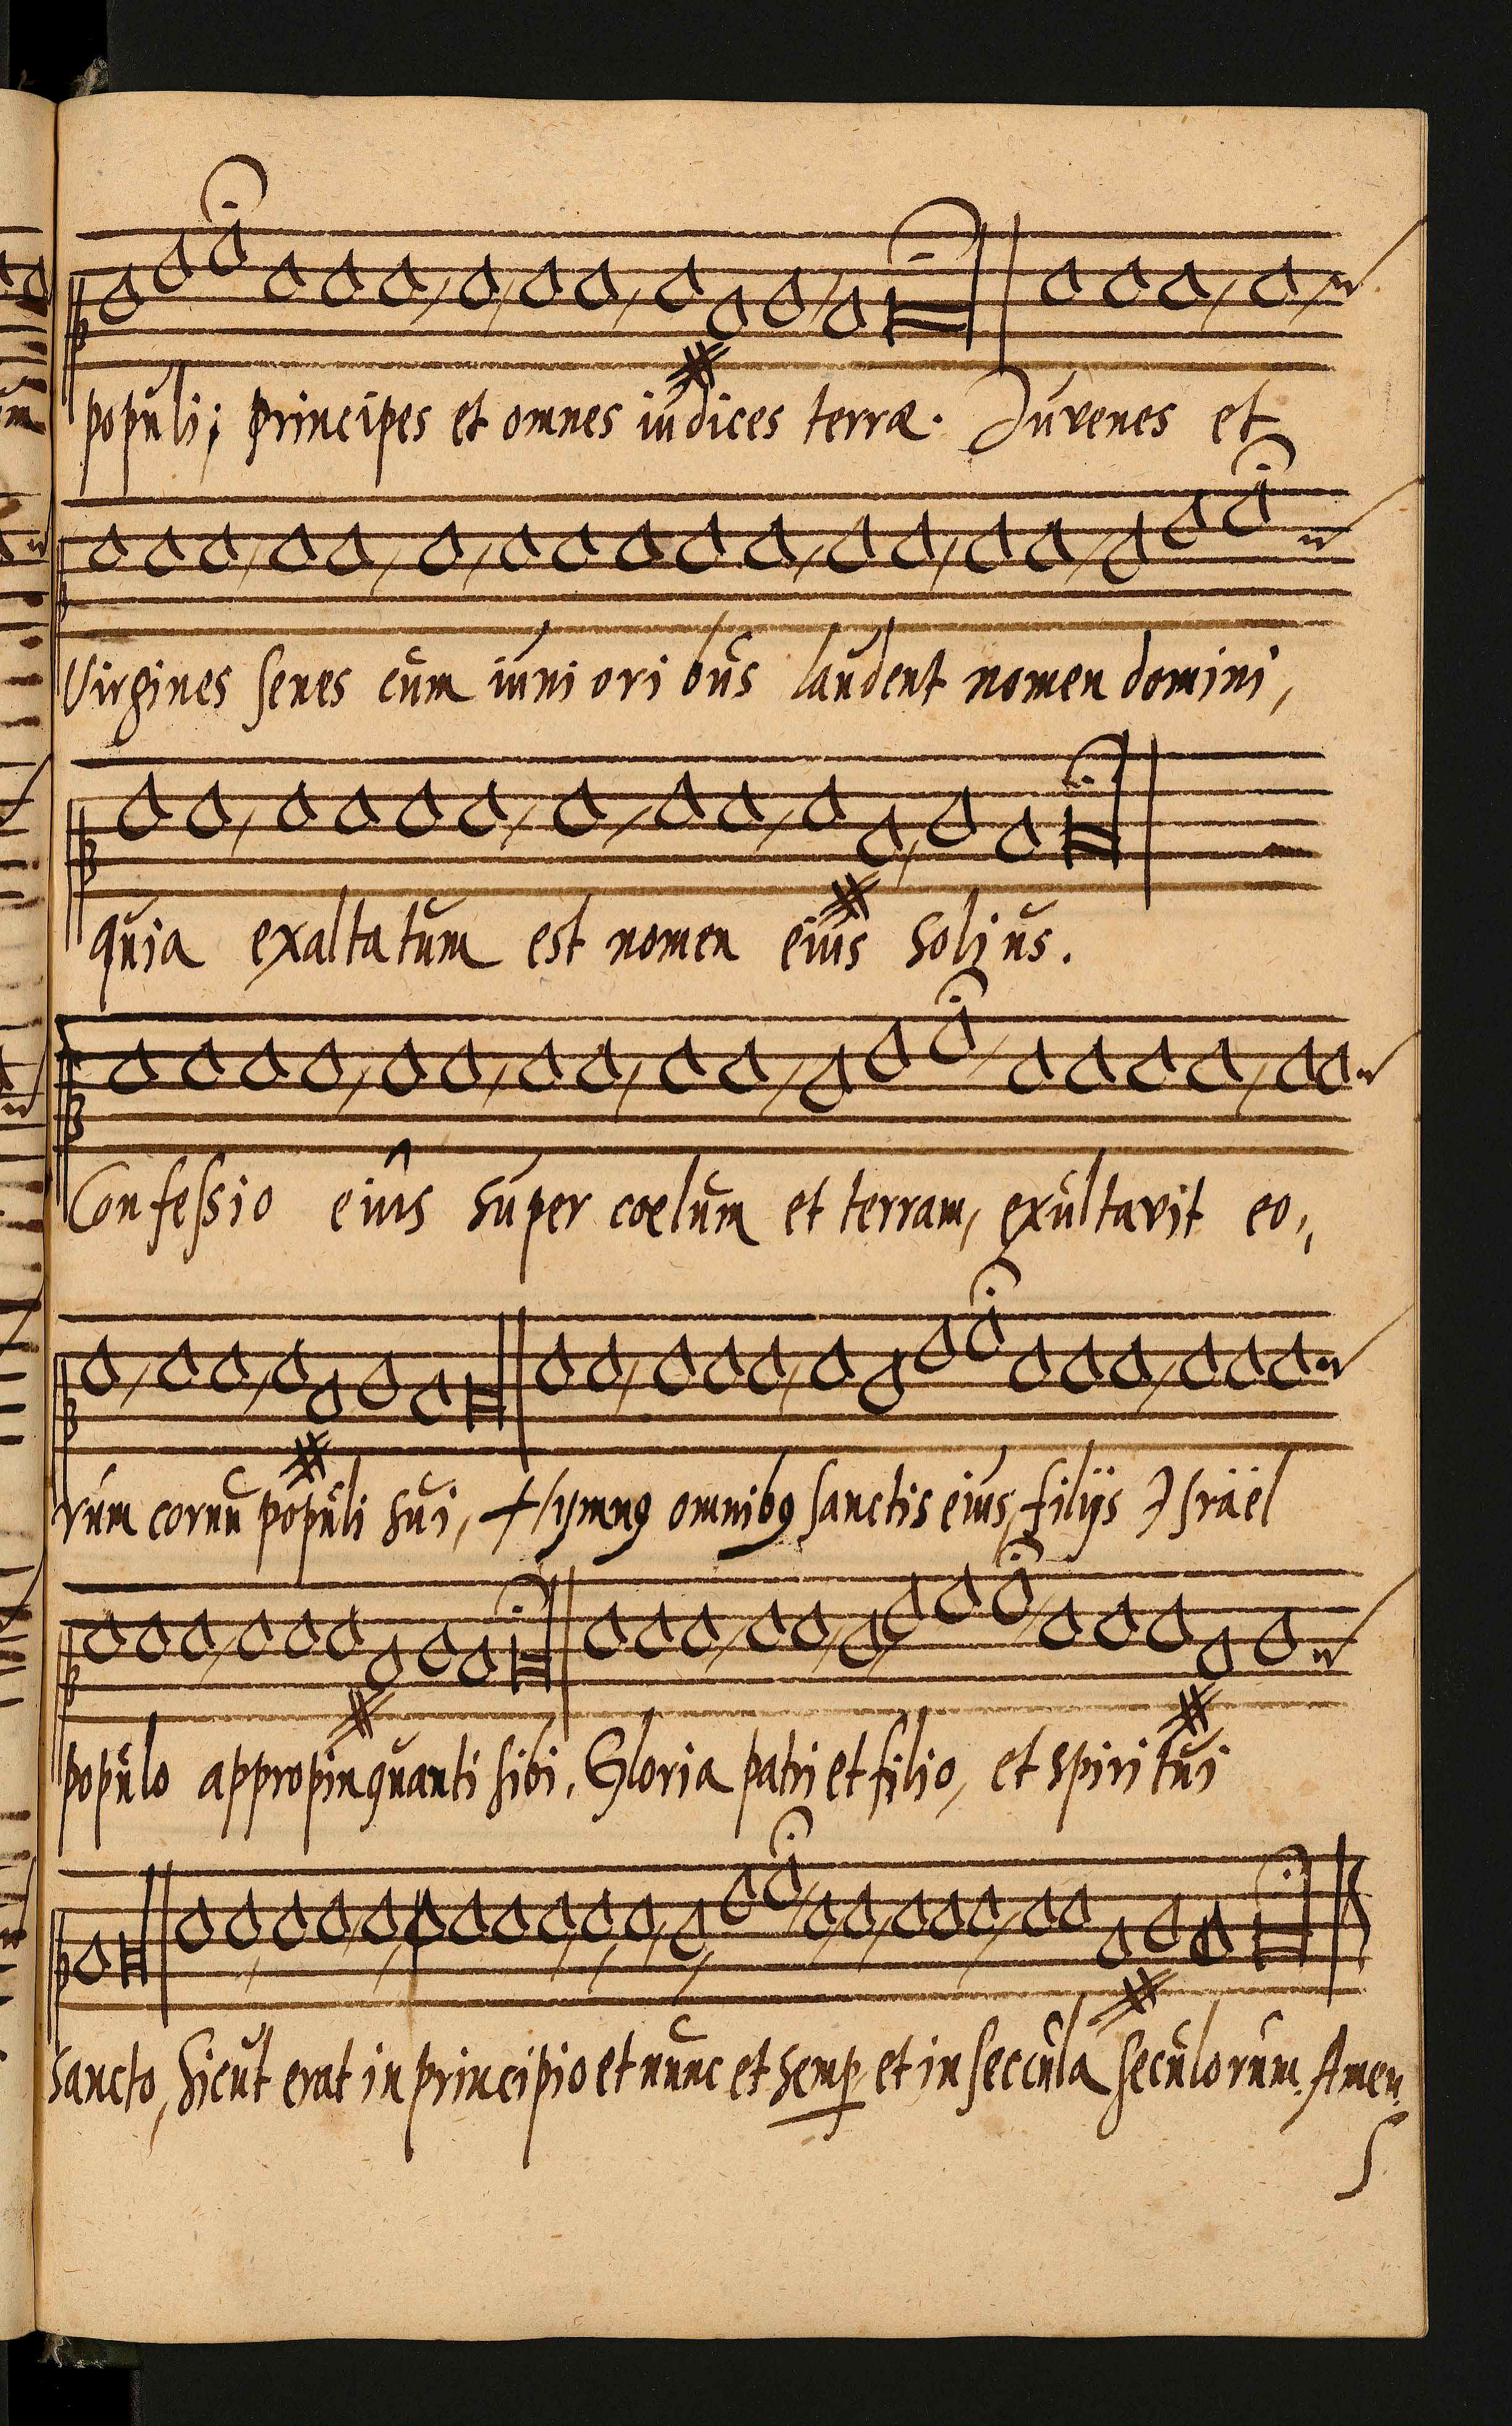 populi; principes et omnes iudices terræ. Juvenes et
Virgines senes cum iuni ori bus laudent nomen domini,
quia exaltatum est nomen eius solius.
Confessio eius super cœlum et terram, exultavit eo,,
rum cornu populi sui, Hymnꝰ omnibꝰ sanctis eius, filijs Israël
populo appropinquanti sibi. Gloria patri et filio, et spiritui
sancto, sicut erat in principio et nunc et semp̱ et in seccula seculorum. Amen.